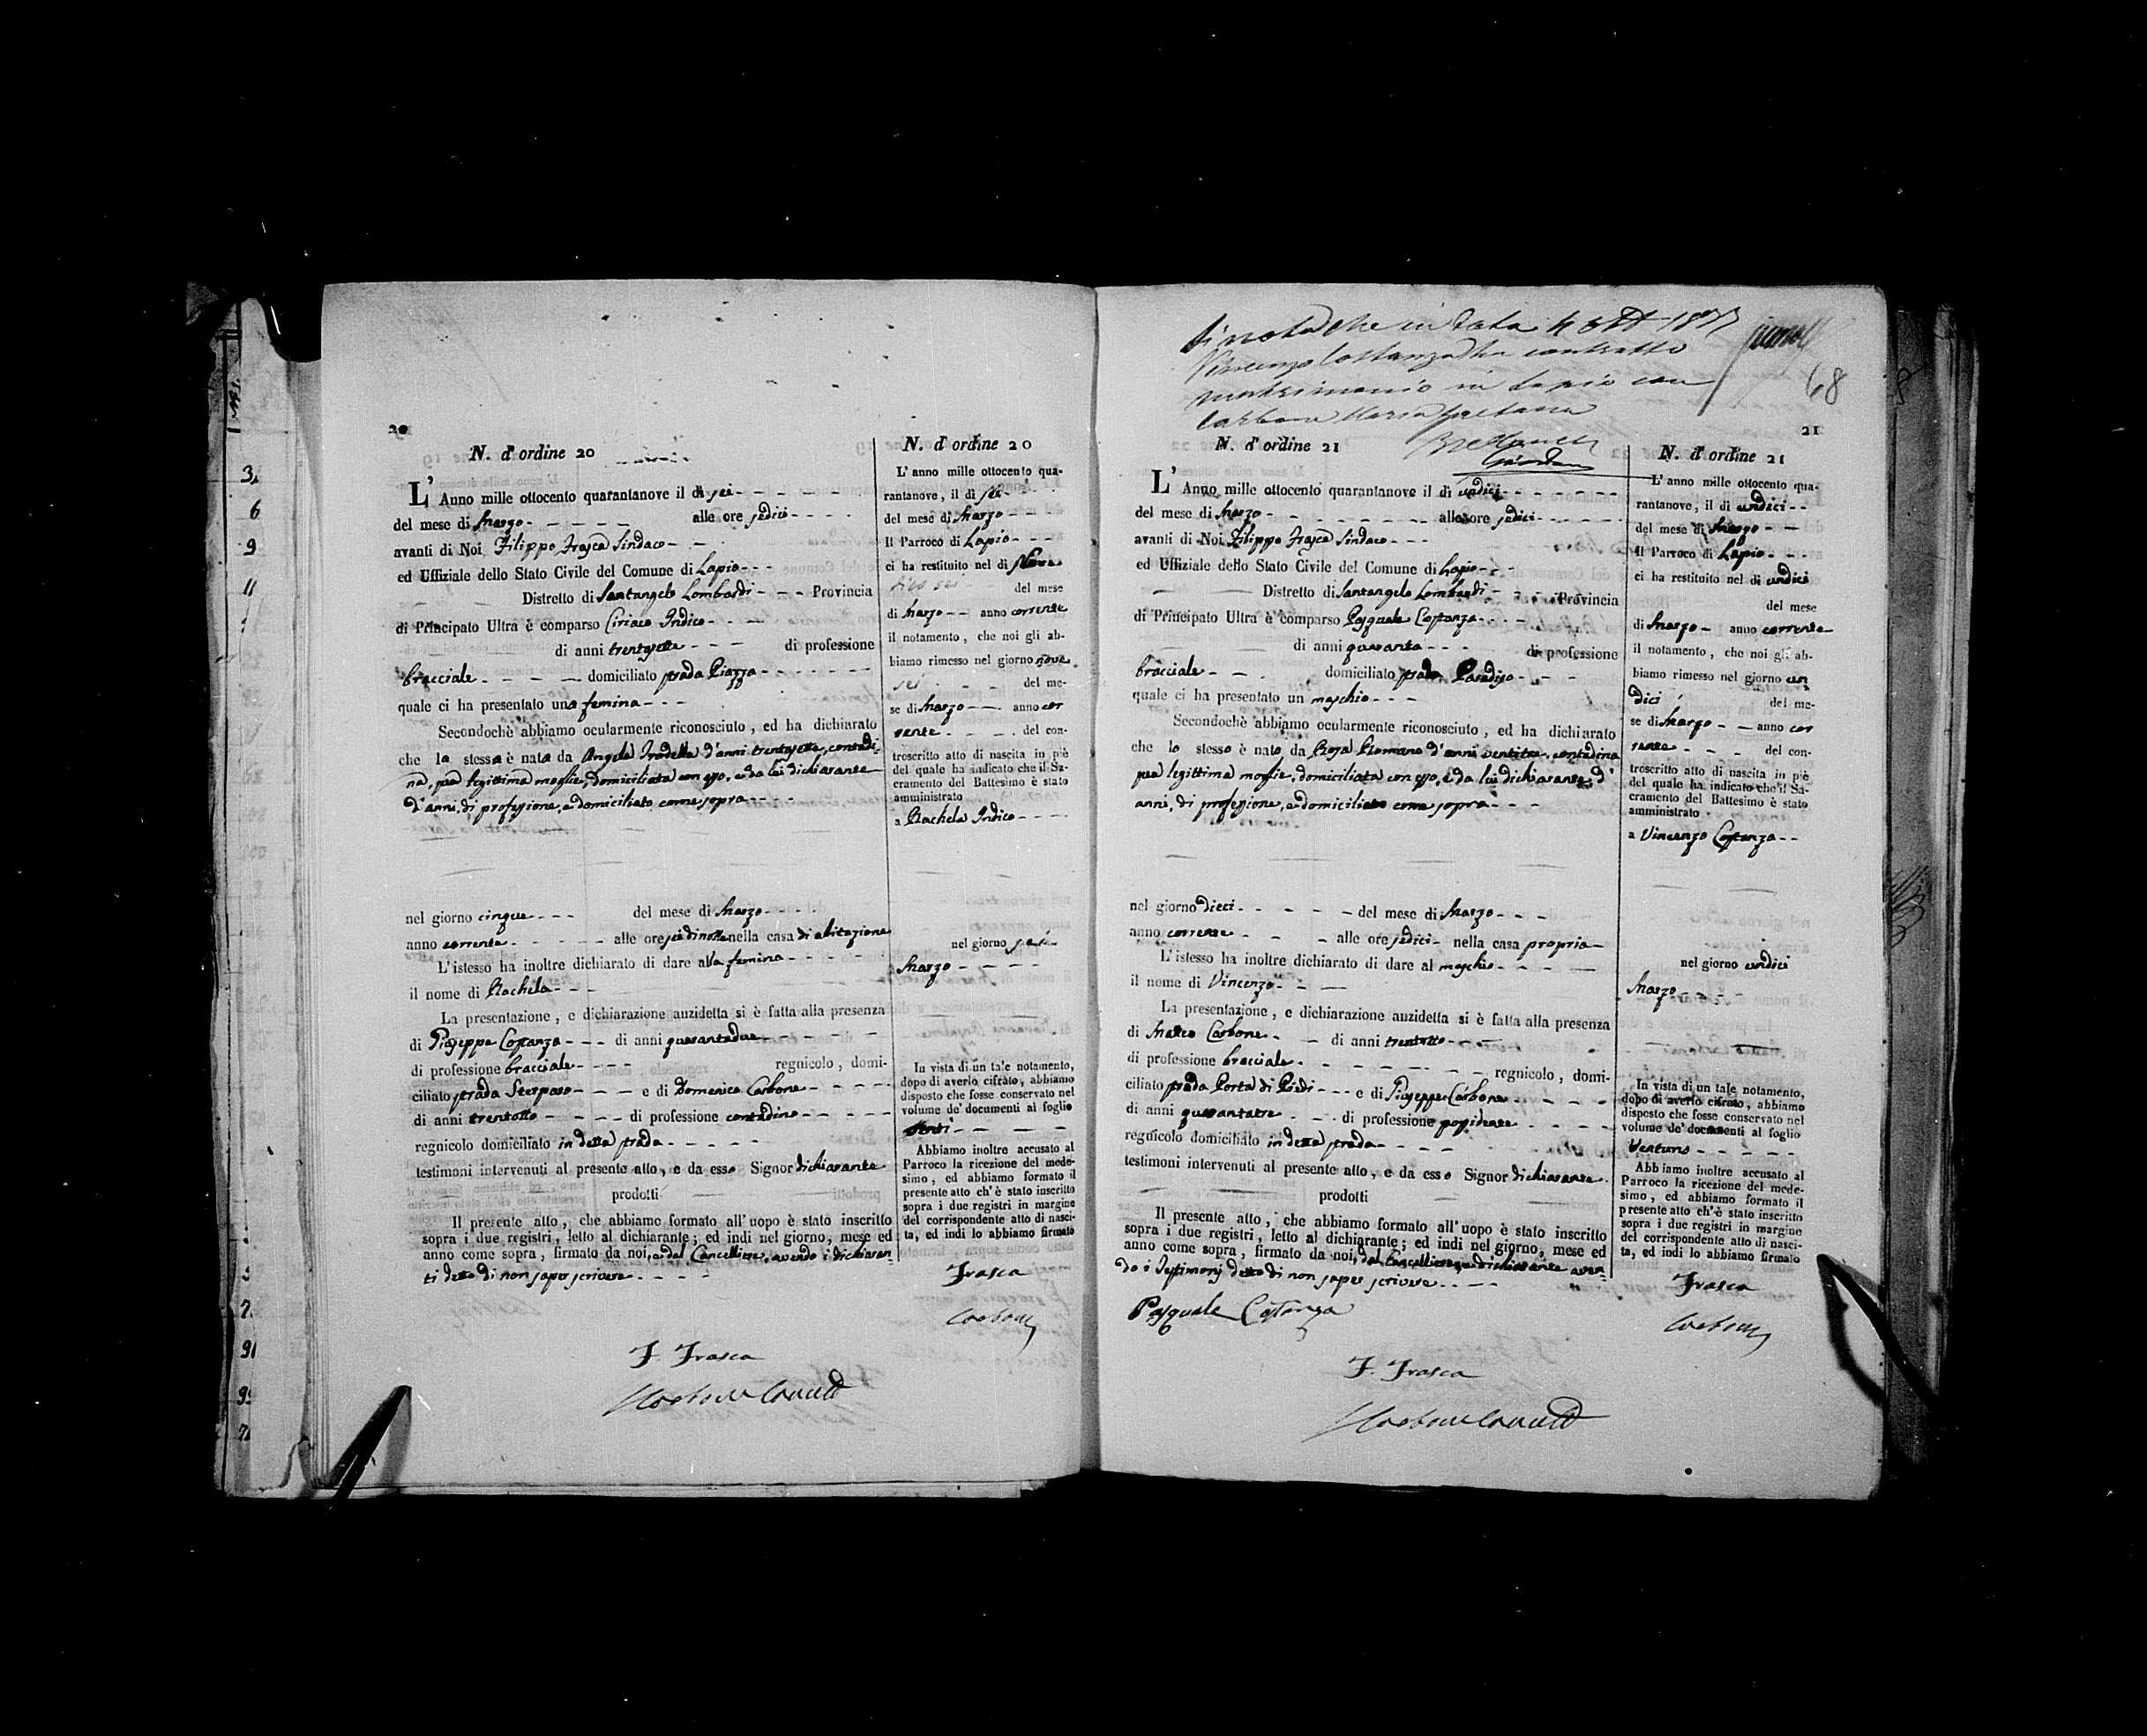 20
N. d'ordine 20
L'Anno mille ottocento quarantanove il di sei
del mese di Marzo alle ore sedici
avanti di Noi Filippo Frasca Sindaco
ed Uffiziale dello Stato Civile del Comune di Lapio
Distretto di Santangelo Lombardi Provincia
di Principato Ultra è comparso Ciriaco Indico
di anni trentasette di professione
bracciale domiciliato strada Piazza
quale ci ha presentato una femina
Secondochè abbiamo ocularmente riconosciuto, ed ha dichiarato
che la stessa è nata da Angela d'anni trentasette, contadi-
na, sua legittima moglie, domiciliata con esso, e da lui dichiarante
d'anni, di professione, e domiciliato come sopra
nel giorno cinque del mese di Marzo
anno corrente alle ore nella casa di abitazione
L'istesso ha inoltre dichiarato di dare alla femina
il nome di Rachela
La presentazione, e dichiarazione anzidetta si è fatta alla presenza
di Giuseppe Costanza di anni quarantadue
di professione bracciale regnicolo, domi-
ciliato strada e di Domenico Carbone
di anni trentotto di professione contadino
regnicolo domiciliato in detta strada
testimoni intervenuti al presente atto, e da esso Signor dichiarante
prodotti
Il presente atto, che abbiamo formato all'uopo è stato inscritto
sopra i due registri, letto al dichiarante; ed indi nel giorno, mese ed
anno come sopra, firmato da noi, e dal Cancelliere, avendo i dichiaran-
ti detto di non saper scrivere
F. Frasca
N. d'ordine 20
L'anno mille ottocento qua-
rantanove, il di sei
del mese di Marzo
Il Parroco di Lapio
ci ha restituito nel di
del mese
di Marzo anno corrente
il notamento, che noi gli ab-
biamo rimesso nel giorno
sei del me-
se di Marzo anno cor
rente del con-
troscritto atto di nascita in piè
del quale ha indicato che il Sa-
cramento del Battesimo è stato
amministrato
a Rachela Indico
nel giorno sei
Marzo
In vista di un tale notamento,
dopo di averlo cifrato, abbiamo
disposto che fosse conservato nel
volume de' documenti al foglio
venti
Abbiamo inoltre accusato al
Parroco la ricezione del mede-
simo, ed abbiamo formato il
presente atto ch'è stato inscritto
sopra i due registri in margine
del corrispondente atto di nasci-
ta, ed indi lo abbiamo firmato
Frasca
Si nota che in data 4
Vincenzo Costanza ha contratto
matrimonio in Lapio con
Carbone Maria Gaetana
68
21
N. d'ordine 21
L'Anno mille ottocento quarantanove il di undici
del mese di Marzo alle ore sedici
avanti di Noi Filippo Frasca Sindaco
ed Uffiziale dello Stato Civile del Comune di Lapio
Distretto di Santangelo Lombardi Provincia
di Principato Ultra è comparso Pasquale Costanza
di anni quaranta di professione
bracciale domiciliato strada Paradiso
quale ci ha presentato un maschio
Secondochè abbiamo ocularmente riconosciuto, ed ha dichiarato
che lo stesso è nato da Rosa Romano d'anni ventitre, contadina
sua legittima moglie, domiciliata con esso, e da lui dichiarante, d'
anni, di professione, e domiciliato come sopra
nel giorno dieci del mese di Marzo
anno corrente alle ore sedici nella casa propria
L'istesso ha inoltre dichiarato di dare al maschio
il nome di Vincenzo
La presentazione, e dichiarazione anzidetta si è fatta alla presenza
di Matteo Carbone di anni trentotto
di professione bracciale regnicolo, domi-
ciliato strada Porta di Piedi e di Giuseppe Carbone
di anni quarantatre di professione possidente
regnicolo domiciliato in detta strada
testimoni intervenuti al presente atto, e da esso Signor dichiarante
prodotti
Il presente atto, che abbiamo formato all'uopo è stato inscritto
sopra i due registri, letto al dichiarante; ed indi nel giorno, mese ed
anno come sopra, firmato da noi, dal Cancelliere, e dichiarante aven-
do i Testimonj detto di non saper scrivere
Pasquale Costanza
F. Frasca
N. d'ordine 21
L'anno mille ottocento qua-
rantanove, il di undici
del mese di Marzo
Il Parroco di Lapio
ci ha restituito nel di undici
del mese
di Marzo anno corrente
il notamento, che noi gli ab-
biamo rimesso nel giorno un
dici del me-
se di Marzo anno cor
rente del con-
troscritto atto di nascita in piè
del quale ha indicato che il Sa-
cramento del Battesimo è stato
amministrato
a Vincenzo Costanza
nel giorno undici
Marzo
In vista di un tale notamento,
dopo di averlo cifrato, abbiamo
disposto che fosse conservato nel
volume de' documenti al foglio
Ventuno
Abbiamo inoltre accusato al
Parroco la ricezione del mede-
simo, ed abbiamo formato il
presente atto ch'è stato inscritto
sopra i due registri in margine
del corrispondente atto di nasci-
ta, ed indi lo abbiamo firmato
Frasca